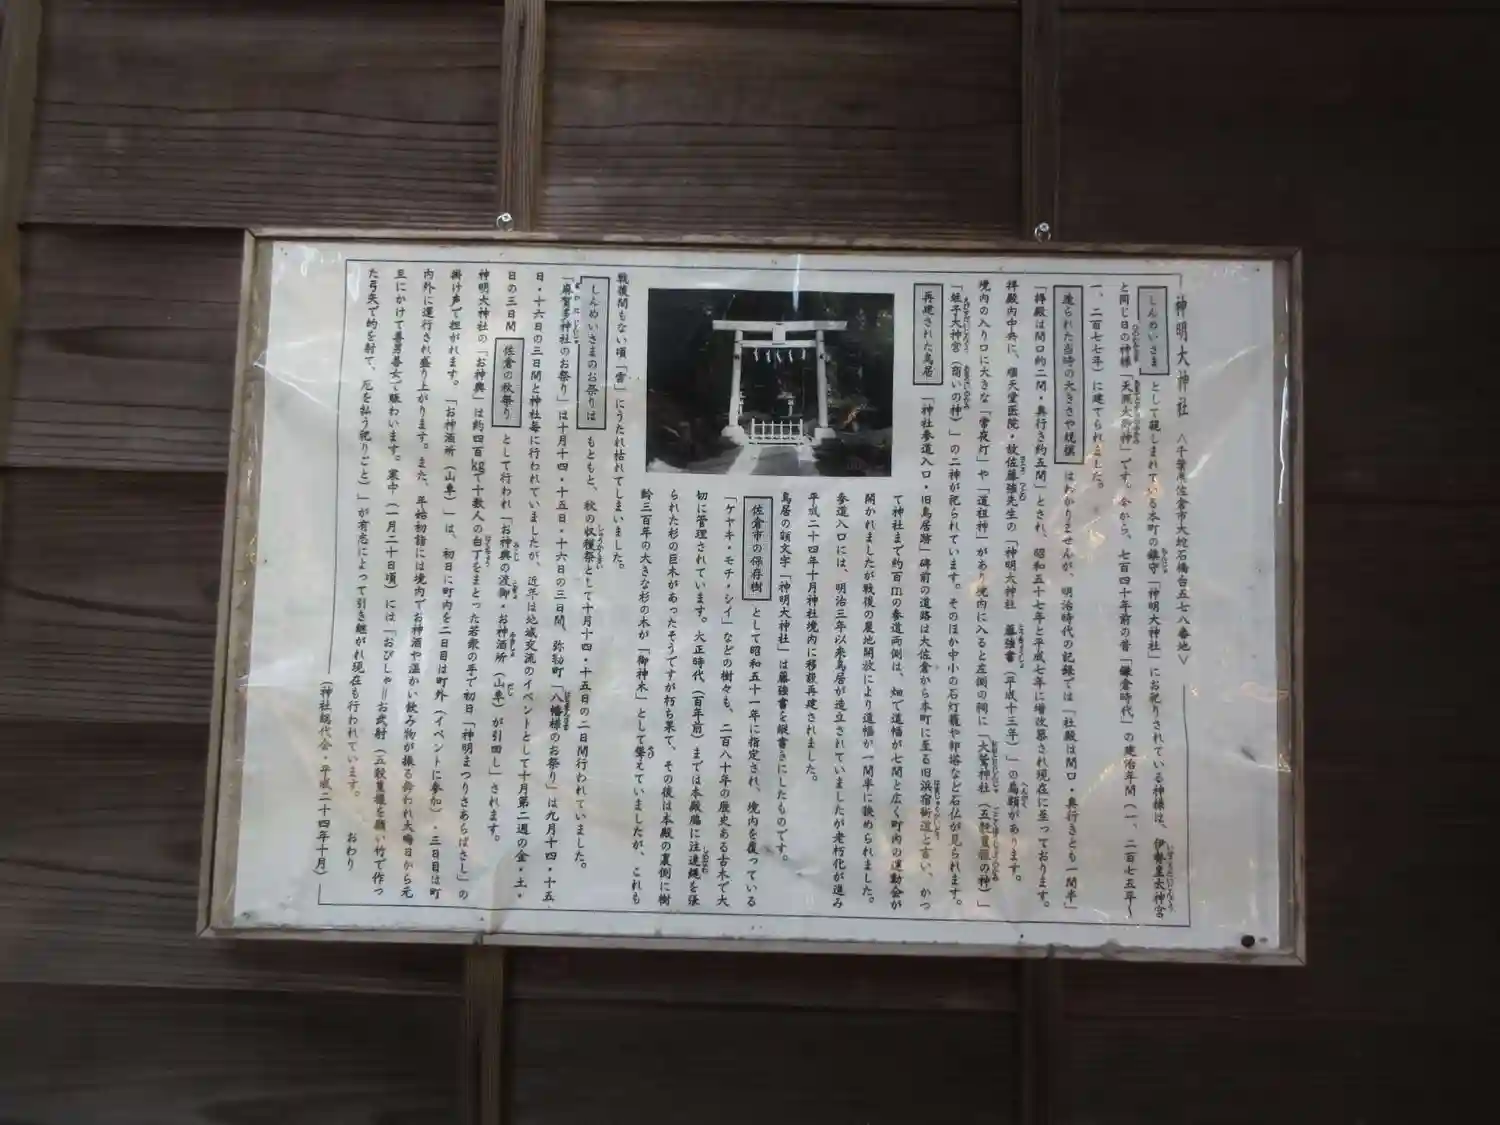 神明大神社 〈千葉県佐倉市大蛇石橋台五七八番地〉
しんめいさま として親しまれている本町の鎮守「神明大神社」にお祀りされている神様は、伊勢皇太神宮
と同じ日の神様「天照大御神」です。今から、七百四十年前の昔「鎌倉時代」の建治年間(一、二百七五年~
一、二百七七年)に建てられました。
造られた当時の大きさや規模 はわかりませんが、明治時代の記録では「社殿は間口・奥行きとも一間半」
「拝殿は間口約二間・奥行き約五間」とされ、昭和五十七年と平成七年に増改築され現在に至っております。
拝殿内中央に、順天堂医院・故佐藤強先生の「神明大神社 藤強書(平成十三年)」の扁額があります。
境内の入り口に大きな「常夜灯」や「道祖神」があり境内に入ると左側の祠に「大鷲神社(五穀豊穣の神)」
「蛭子大神宮(商いの神)」の二神が祀られています。そのほか中小の石灯籠や卵塔など石仏が見られます。
再建された鳥居 「神社参道入口・旧鳥居跡」碑前の道路は大佐倉から本町に至る旧浜宿街道と言い、かつ
て神社まで約百mの参道両側は、畑で道幅が七間と広く町内の運動会が
開かれましたが戦後の農地開放により道幅が一間半に狭められました。
参道入口には、明治三年以来鳥居が造立されていましたが老朽化が進み
平成二十四年十月神社境内に移設再建されました。
鳥居の額文字「神明大神社」は藤強書を縦書きにしたものです。
佐倉市の保存樹 として昭和五十一年に指定され、境内を覆っている
「ケヤキ・モチ・シイ」などの樹々も、二百八十年の歴史ある古木で大
切に管理されています。大正時代(百年前)までは本殿脇に注連縄を張
られた杉の巨木があったそうですが朽ち果て、その後は本殿の裏側に樹
齢三百年の大きな杉の木が「御神木」として聳えていましたが、これも
戦後間もない頃「雷」にうたれ枯れてしまいました。
しんめいさまのお祭りは もともと、秋の収穫祭として十月十四・十五日の二日間行われていました。
「麻賀多神社のお祭り」は十月十四・十五日・十六日の三日間、弥勒町「八幡様のお祭り」は九月十四・十五
日・十六日の三日間と神社毎に行われていましたが、近年は地域交流のイベントとして十月第二週の金・土・
日の三日間 佐倉の秋祭り として行われ「お神輿の渡御・お神酒所(山車)が引回し」されます。
神明大神社の「お神輿」は約四百kgで十数人の白丁をまとった若衆の手で初日「神明まつりさあらばさし」の
掛け声で担がれます。「お神酒所(山車)」は、初日に町内を二日目は町外(イベントに参加)・三日目は町
内外に運行され盛り上がります。また、年始初詣には境内でお神酒や温かい飲み物が振る舞われ大晦日から元
旦にかけて善男善女で賑わいます。寒中(一月二十日頃)には「おびしゃ=お武射(五穀豊穣を願い竹で作っ
た弓矢で的を射て、厄を払う祀りごと)」が有志によって引き継がれ現在も行われています。 おわり
(神社総代会・平成二十四年十月)